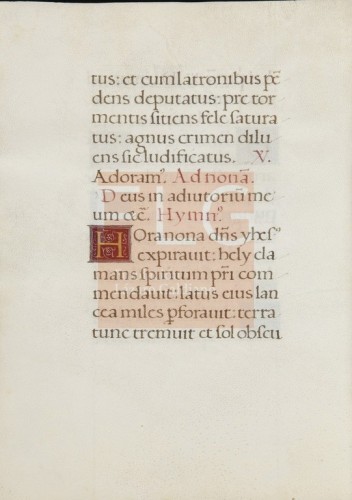 tus: et cum latronibus pē
dens deputatus: pre tor
mentis sitiens fele satura
tus: agnus crimen dilu
ens sic ludificatus. V.
Adoram⁹. Ad nonā.
Deus in adiutoriū me
um &c̄. Hymn⁹.
Hora nona dn̄s yhes⁹
expirauit: hely cla
mans spiritum pr̄i com
mendauit: latus eius lan
cea miles ꝑforauit: terra
tunc tremuit et sol obscu
FLG